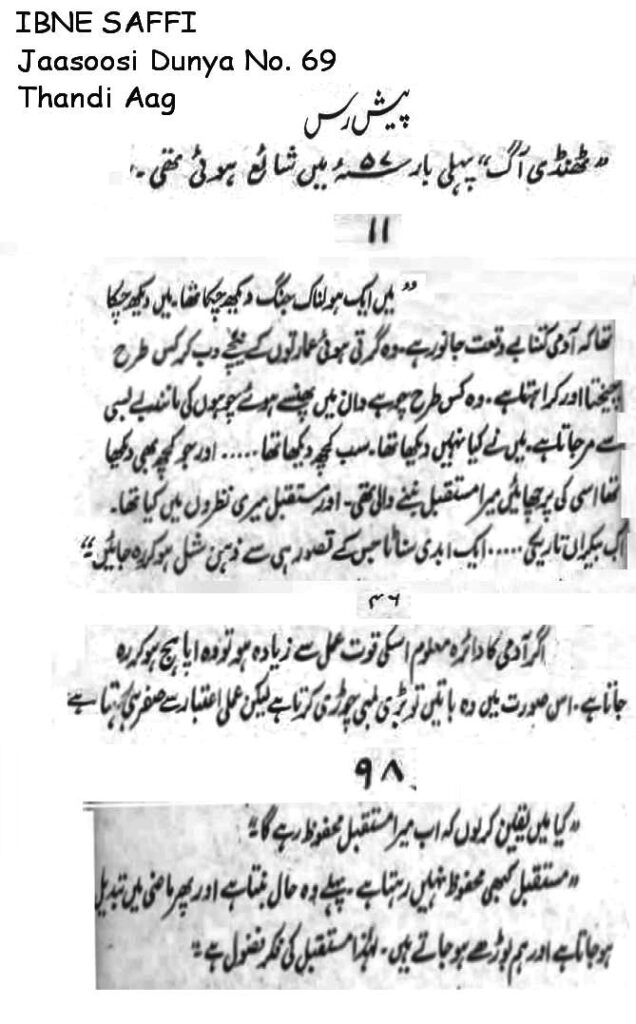 IBNE SAFFI
Jaasoosi Dunya No. 69
Thandi Aag
پیش رس
”ٹھنڈی آگ“ پہلی بار ۵۷ء میں شائع ہوئی تھی۔
۱۱
”میں ایک ہولناک جنگ دیکھ چکا تھا۔ میں دیکھ چکا
تھا کہ آدمی کتنا بے وقعت جانور ہے۔ وہ گرتی ہوئی عمارتوں کے نیچے دب کر کس طرح
چیختا اور کراہتا ہے۔ وہ کس طرح چوہے دان میں پھنسے ہوئے چوہوں کی مانند بے بسی
سے مر جاتا ہے۔ میں نے کیا نہیں دیکھا تھا۔ سب کچھ دیکھا تھا..... اور جو کچھ بھی دیکھا
تھا اسی کی پرچھائیں میرا مستقبل بننے والی تھی۔ اور مستقبل میری نظروں میں کیا تھا۔
اک بیکراں تاریکی..... ایک ابدی سناٹا جس کے تصور ہی سے ذہن شل ہو کر رہ جائیں“
۴۶
اگر آدمی کا دائرہ معلوم اسکی قوت عمل سے زیادہ ہو تو وہ اپاہج ہو کر رہ
جاتا ہے۔ اس صورت میں وہ باتیں تو بڑی لمبی چوڑی کرتا ہے لیکن عملی اعتبار سے صفر ہی رہتا ہے
۹۸
”کیا میں یقین کر لوں کہ اب میرا مستقبل محفوظ رہے گا“
”مستقبل کبھی محفوظ نہیں رہتا ہے۔ پہلے وہ حال بنتا ہے اور پھر ماضی میں تبدیل
ہو جاتا ہے اور ہم بوڑھے ہو جاتے ہیں۔ لہٰذا مستقبل کی فکر فضول ہے“